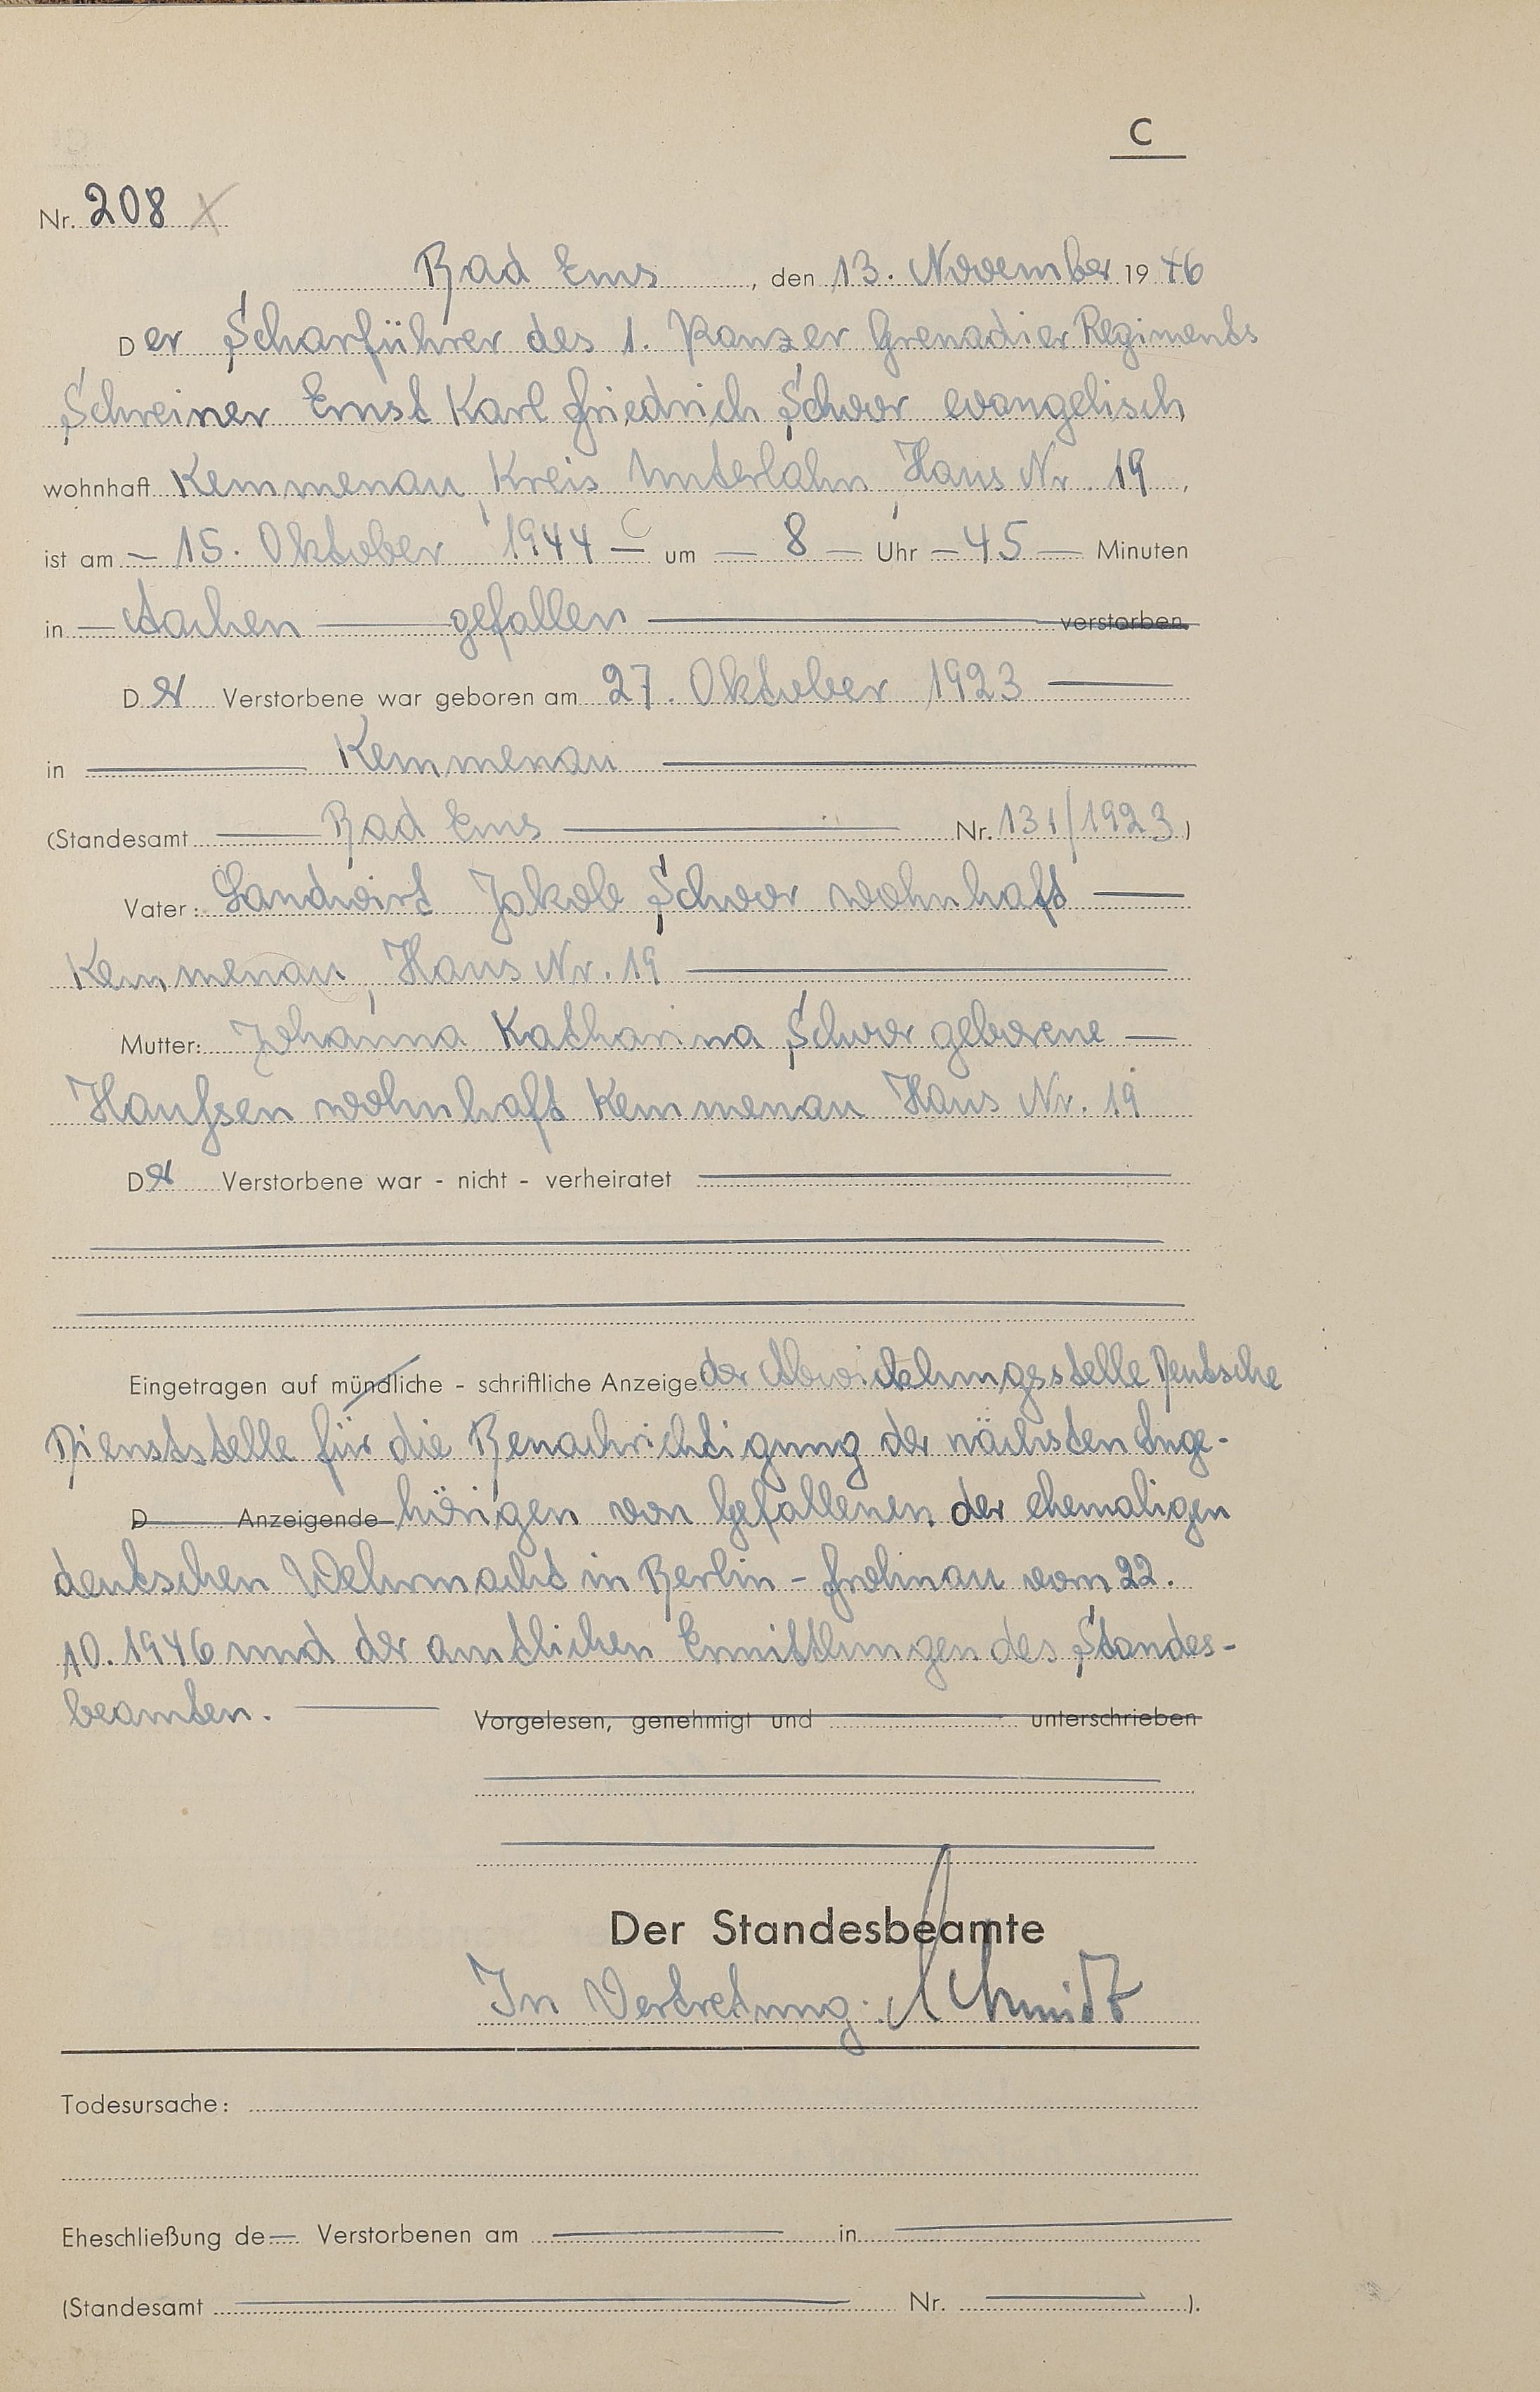 C
Nr. 208
Bad Ems, den 13. November 1946
Der Scharführer des 1. Panzer Grenadier Regiments
Schreiner Ernst Karl Friedrich Schwor evangelisch
wohnhaft Kemmenau, Kreis Unterlahn, Haus Nr. 19,
ist am – 15. Oktober 1944 – um – 8 – Uhr – 45 – Minuten
in – Aachen – gefallen – verstorben.
Der Verstorbene war geboren am 27. Oktober 1923 –
in – Kemmenau –
(Standesamt – Bad Ems – Nr. 131/1923)
Vater: Landwirt Jakob Schwor wohnhaft –
Kemmenau, Haus Nr. 19 –
Mutter: Johanna Katharina Schwor geborene –
wohnhaft Kemmenau Haus Nr. 19
Der Verstorbene war - nicht - verheiratet –
Eingetragen auf mündliche - schriftliche Anzeige der Abwicklungsstelle Deutsche
Dienststelle für die Benachrichtigung der nächsten Ange-
D Anzeigende hörigen von Gefallenen der ehemaligen
deutschen Wehrmacht in Berlin - Frohnau vom 22.
10. 1946 und der amtlichen Ermittlungen des Standes-
beamten. – Vorgelesen, genehmigt und unterschrieben
Der Standesbeamte
In Vertretung: Schmidt
Todesursache:
Eheschließung de– Verstorbenen am – in –
(Standesamt – Nr. – ).